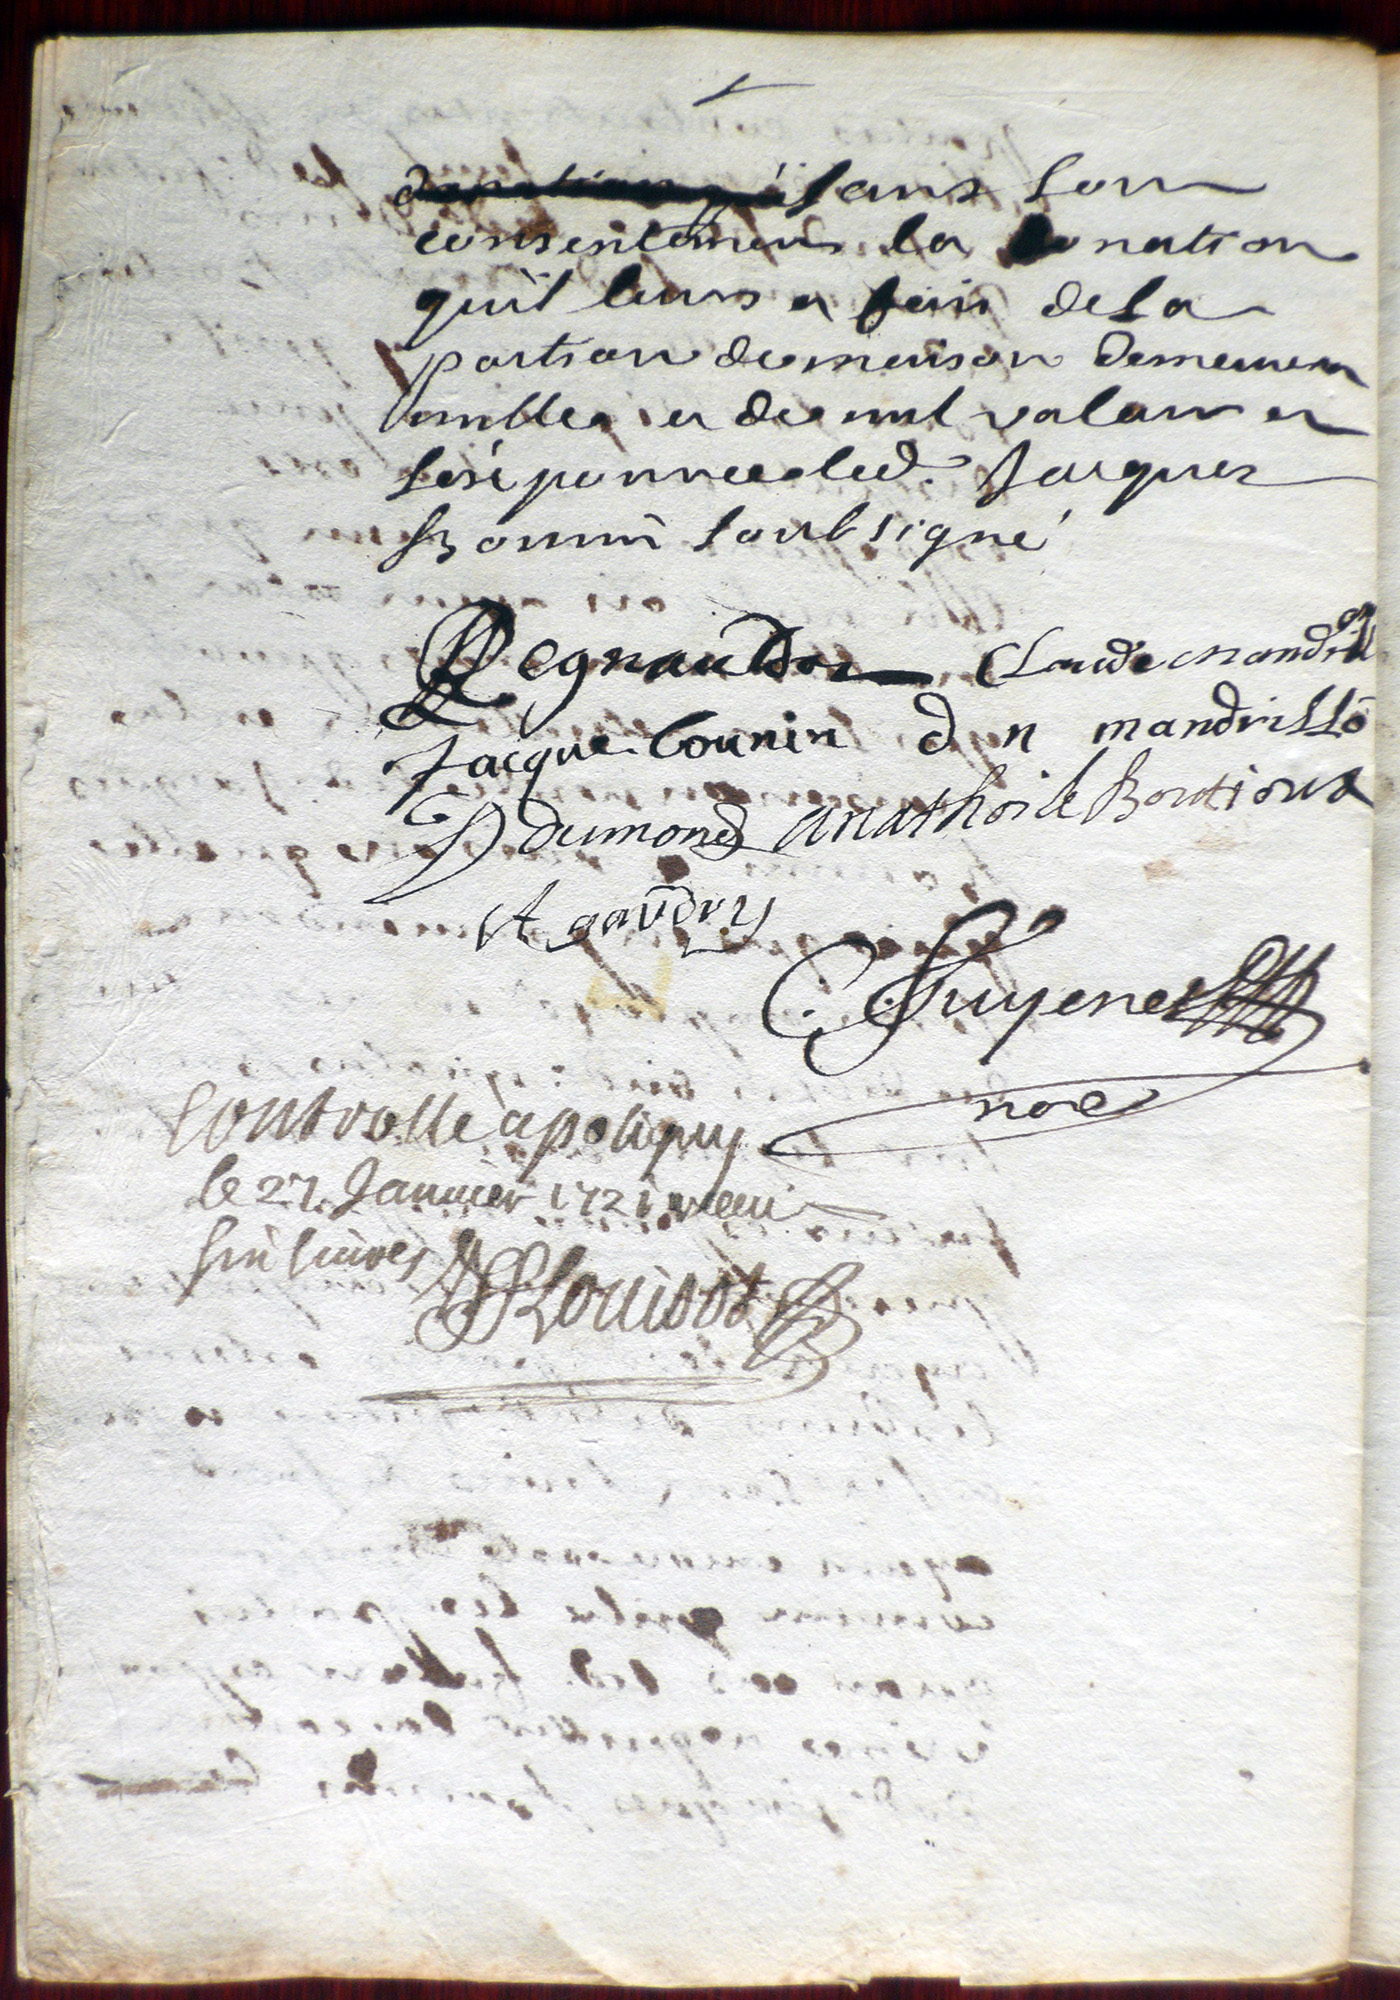 sans son
consentement la donation
quil leurs a fait de la
portion de maison demeurera
nulle et de nul valeur et
led. Jacques
Bonnin soubsigné
Regnauldot Claude mandrill
Jacque bounin d n mandrillõ
D dumond anathoile Boutioux
A gaudry
C. Guyenet
nore
Controllé a poligny
le 27 Janvier 1721 receu
six livres Louisot